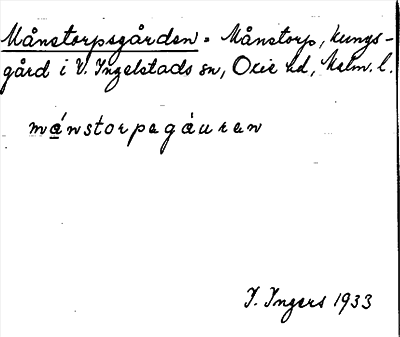 Månstorpsgården = Månstorp, kungs-
gård i V. Ingelstads sn, Oxie hd, Malm. l.
mánstorpsgáuren
I. Ingers 1933